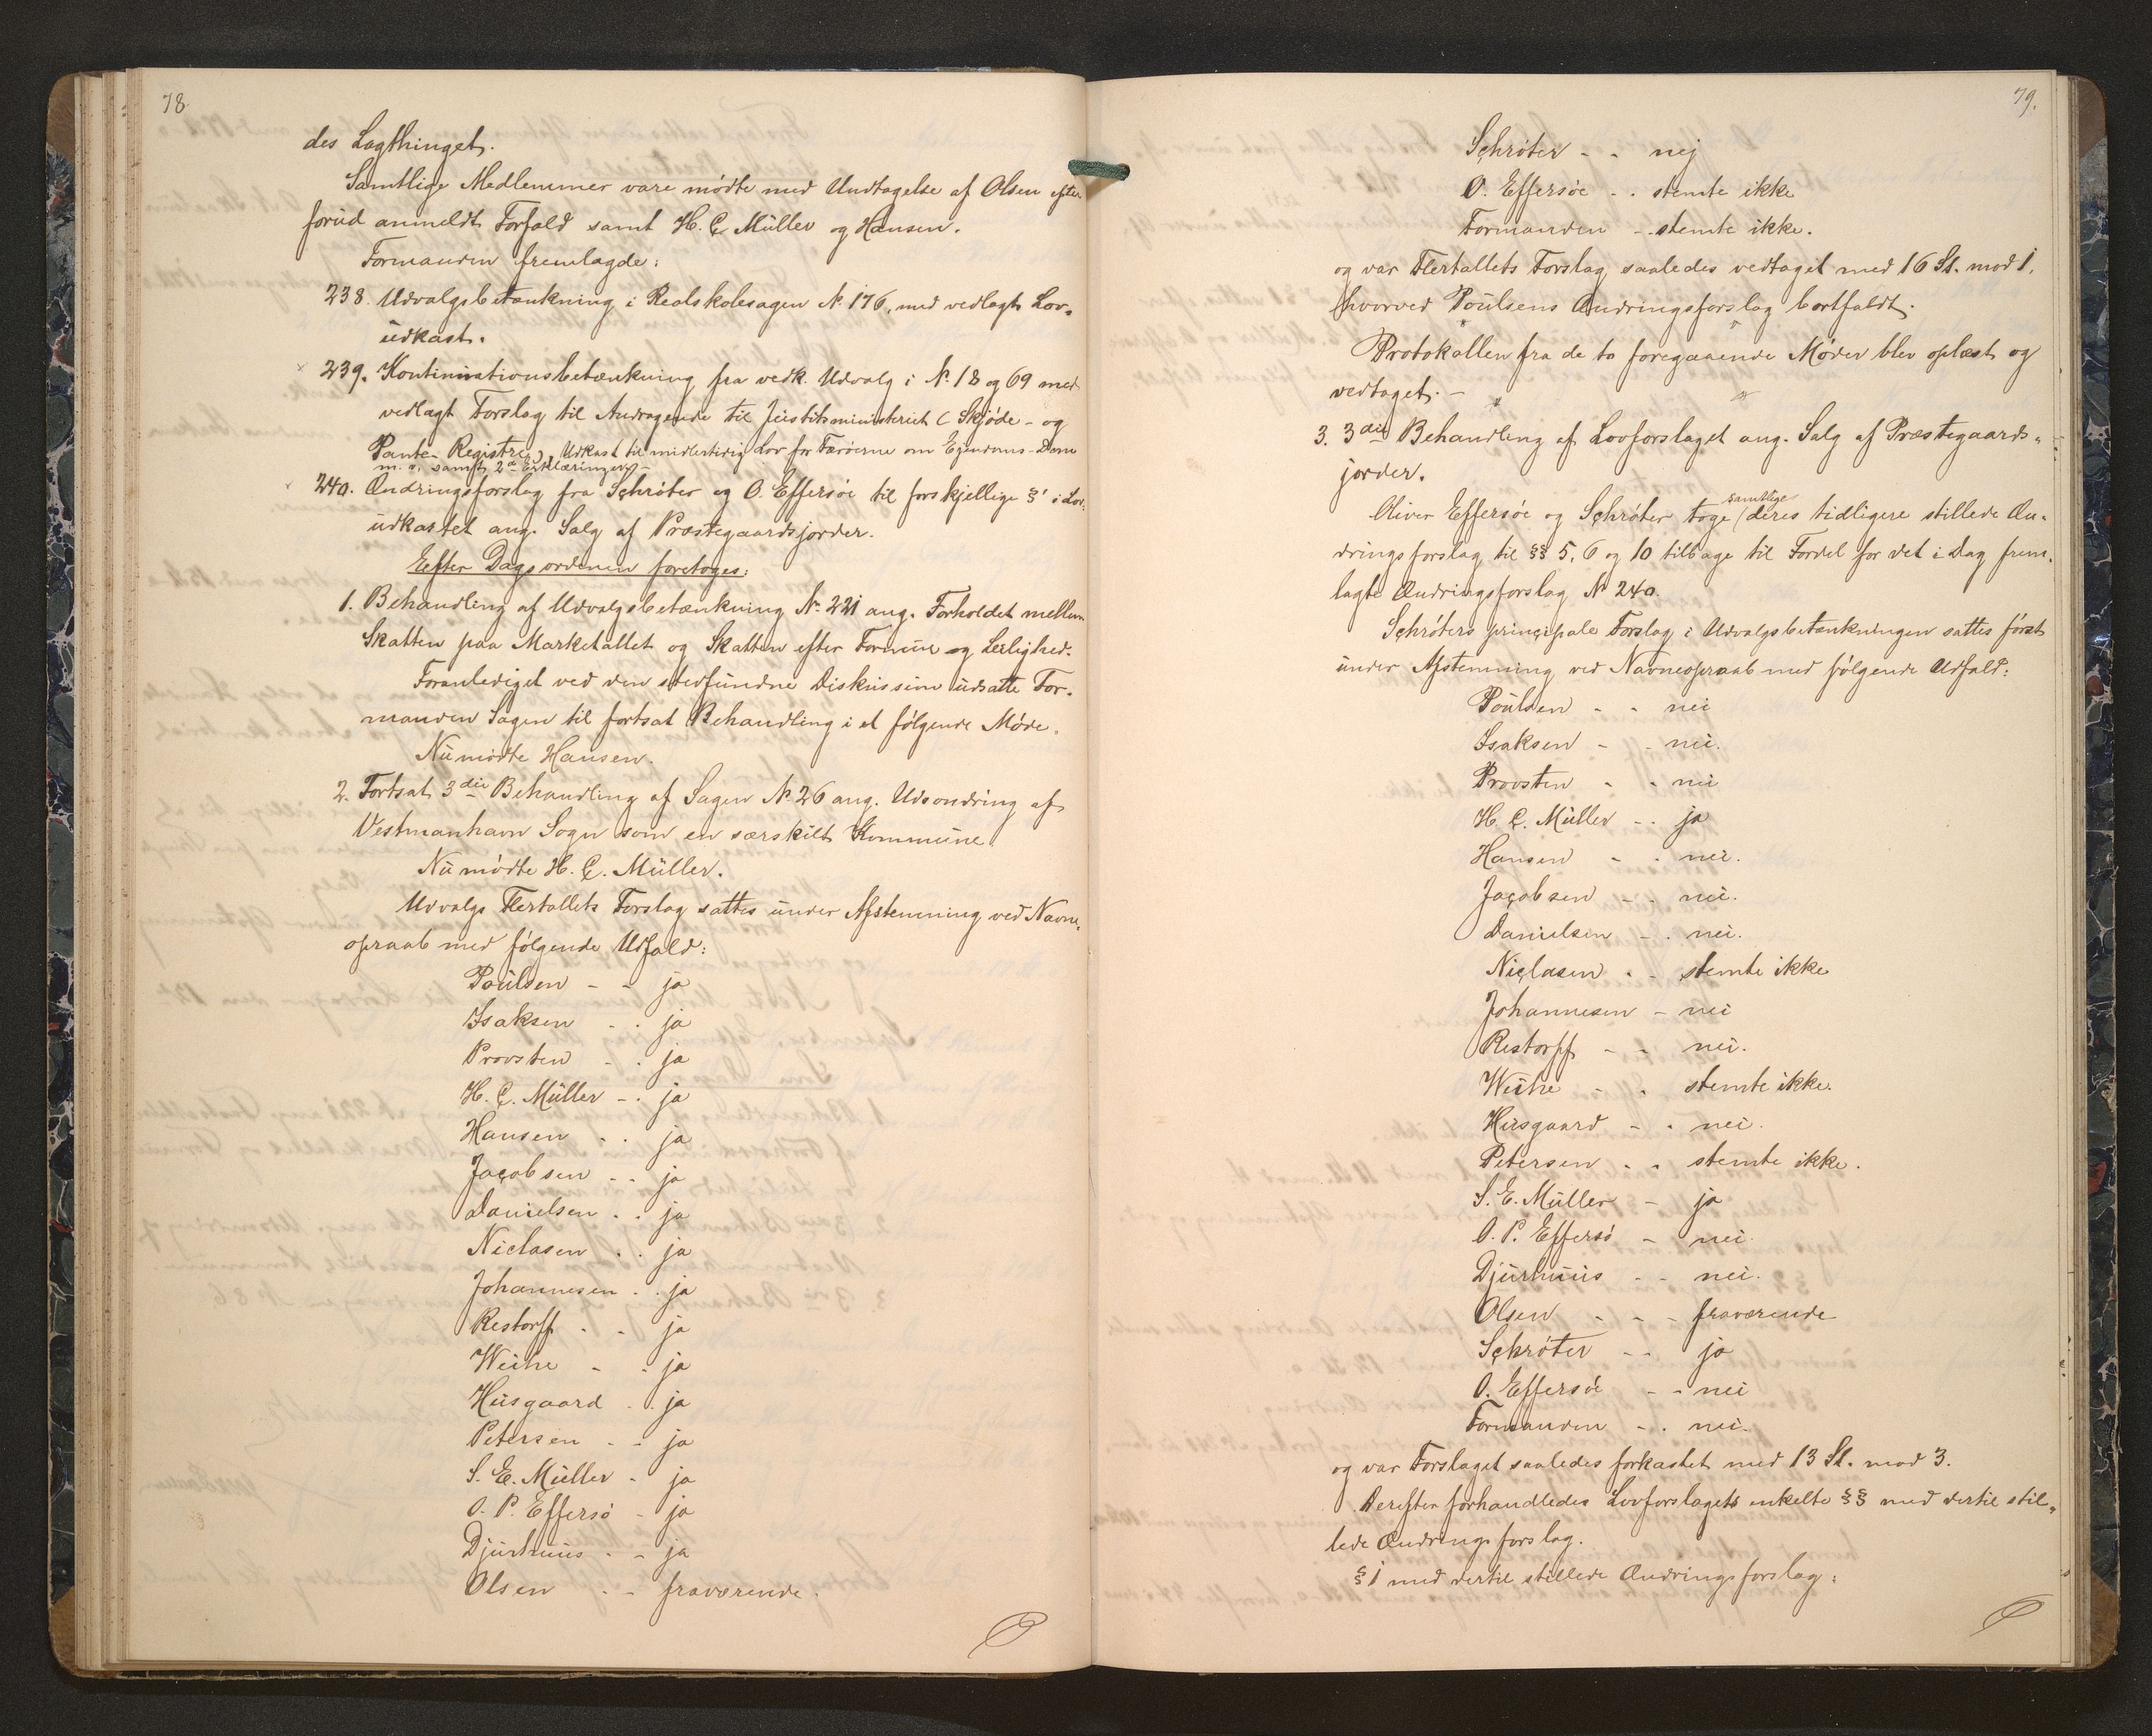 78
des Lagthinget.
Samtlige Medlemmer vare mødte med Undtagelse af Olsen efter
forud anmeldt Forfald samt H. C. Müller og Hansen.
Formanden fremlagde:
238. Udvalgsbetænkning i Realskolesagen N. 176, med vedlagt Lov-
udkast.
239. Kontinuationsbetænkning fra vedk. Udvalg i N. 18 og 69 med
vedlagt Forslag til Andragende til Justitsministeriet (Skjøde- og
Pante-Registre), Udkast til midlertidig Lov for Færøerne om Ejendoms-Dom
m. v. samt 2de Erklæringer.-
240. Ændringsforslag fra Schrøter og O. Effersøe til forskjellige §' i Lov-
udkastet ang. Salg af Præstegaardsjorder.
Efter Dagsordenen foretoges:
1. Behandling af Udvalgsbetænkning N. 221 ang. Forholdet mellem
Skatten paa Marketallet og Skatten efter Formue og Leilighed.
Foranlediget ved den stedfundne Diskussion udsatte For-
manden Sagen til fortsat Behandling i et følgende Møde.
Nu mødte Hansen.
2. Fortsat 3die Behandling af Sagen N. 26 ang. Udsondring af
Vestmanhavn Sogn som en særskilt Kommune.
Nu mødte H. C. Müller.
Udvalgs Flertallets Forslag sattes under Afstemning ved Navne-
opraab med følgende Udfald:
Poulsen - - ja
Isaksen - - ja
Provsten - - ja
H. C. Müller - - ja
Hansen - - ja
Jacobsen - - ja
Danielsen - - ja
Niclasen - - ja
Johannesen - - ja
Restorff - - ja
Weihe - - ja
Husgaard - - ja
Petersen - - ja
S. E. Müller - ja
O. P. Effersø - ja
Djurhuus - - ja
Olsen - - fraværende.
79.
Schrøter - - nej
O. Effersøe - - stemte ikke
Formanden - - stemte ikke.
og var Flertallets Forslag saaledes vedtaget med 16 St. mod 1,
hvorved Poulsens Ændringsforslag bortfaldt.
Protokollen fra de to foregaaende Møder blev oplæst og
vedtaget. -
3. 3die Behandling af Lovforslaget ang. Salg af Præstegaards-
jorder.
samtlige
Oliver Effersøe og Schrøter toge deres tidligere stillede Æn-
dringsforslag til §§ 5, 6 og 10 tilbage til Fordel for det i Dag frem-
lagte Ændringsforslag N. 240.
Schrøters principale Forslag i Udvalgsbetænkningen sattes først
under Afstemning ved Navneopraab med følgende Udfald:
Poulsen - - nei
Isaksen - - nei.
Provsten - - nei
H. C. Müller - - ja
Hansen - - nei.
Jacobsen - - nei.
Danielsen - - nei.
Niclasen - - stemte ikke
Johannesen - nei
Restorff - - nei.
Weihe - - stemte ikke.
Husgaard - - nei.
Petersen - - stemte ikke.
S. E. Müller - ja
O. P. Effersø - nei.
Djurhuus - - nei.
Olsen - - - fraværende
Schrøter - - ja
O. Effersøe - - nei
Formanden - - nei.
og var Forslaget saaledes forkastet med 13 St. mod 3.
Derefter forhandledes Lovforslagets enkelte §§ med dertil stil-
lede Ændringsforslag.
§ 1 med dertil stillede Ændringsforslag: